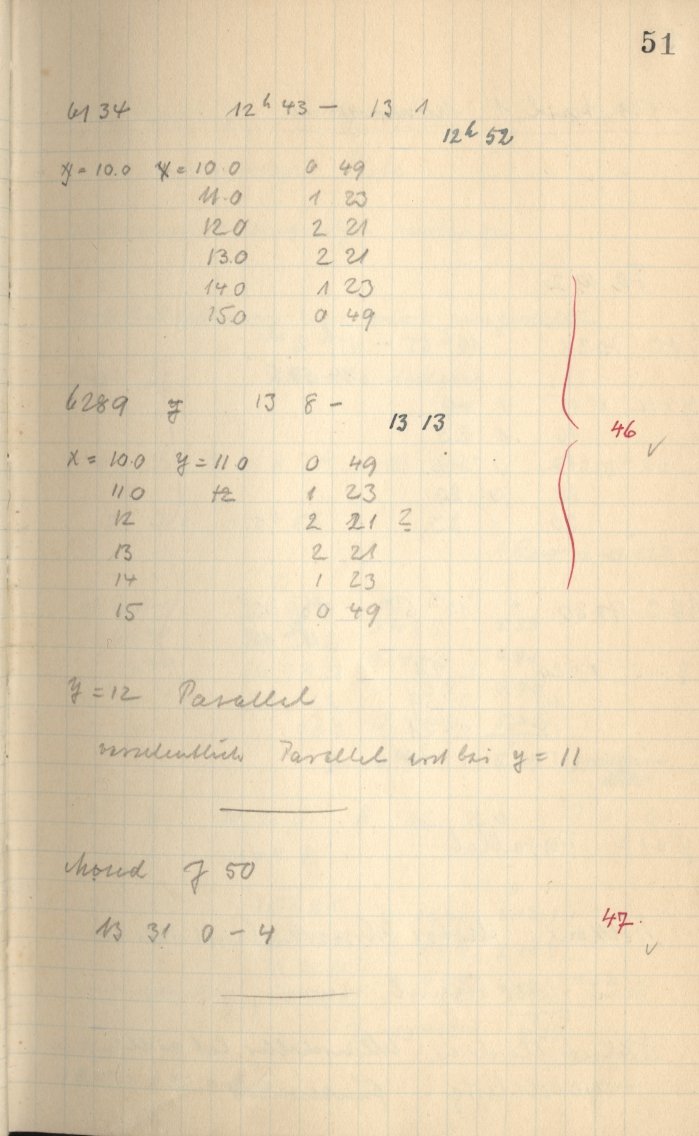 51
6134 12h 43 — 13 1
12h 52
y = 10.0 x = 10.0 0 49
11.0 1 23
12.0 2 21
13.0 2 21
14.0 1 23
15.0 0 49
6289 13 8 —
13 13
x = 10.0 y = 11.0 0 49
11.0 12 1 23
12 2 21 ?
13 2 21
14 1 23
15 0 49
46
y = 12 Parallel
versehentlich Parallel erst bei y = 11
Mond J 50
13 31 0 – 4
47.